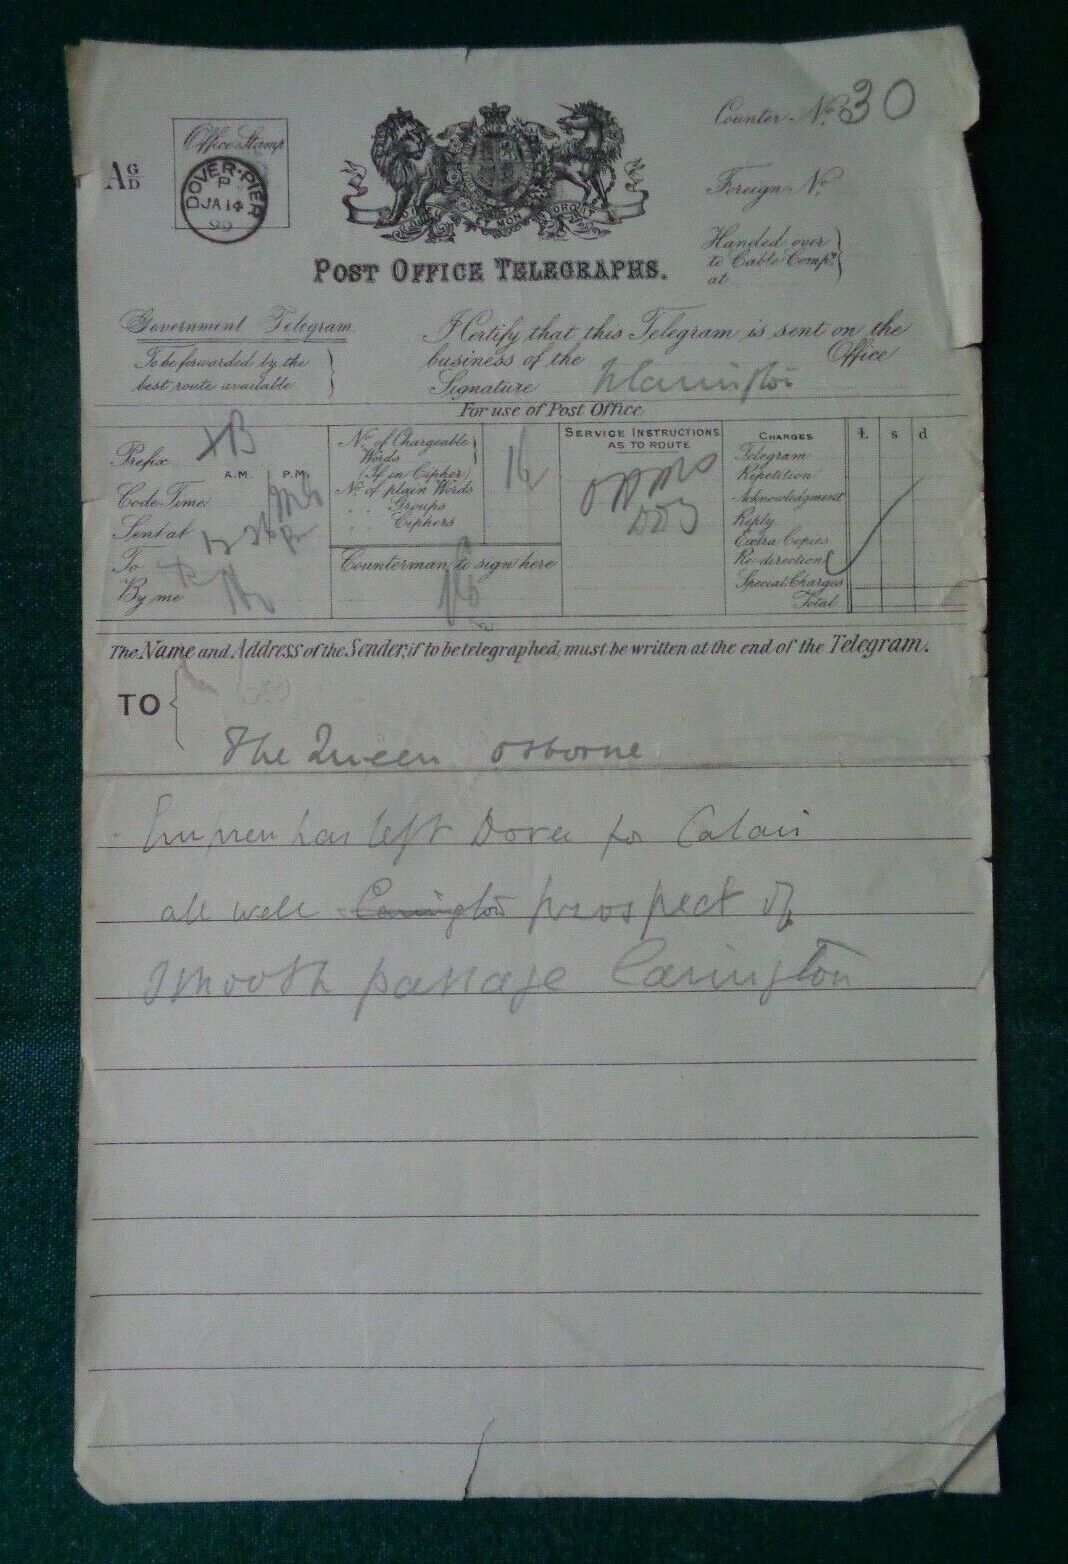 Counter No. 30
Office Stamp
AG/D
DOVER·PIER
P
JA 14
Foreign No.
Handed over
to Cable Compy.
at
POST OFFICE TELEGRAPHS.
Government Telegram
I Certify that this Telegram is sent on the
business of the Office
To be forwarded by the
best route available
Signature
For use of Post Office
Prefix XB
A.M. P.M.
Code Time
Sent at
To
By me
No. of Chargeable
Words
(If in Cipher)
No. of plain Words
" " Groups
" " Ciphers
Counterman to sign here
SERVICE INSTRUCTIONS
AS TO ROUTE
CHARGES £ s d
Telegram
Repetition
Acknowledgment
Reply
Extra Copies
Re-direction
Special Charges
Total
The Name and Address of the Sender, if to be telegraphed, must be written at the end of the Telegram.
TO
The Queen Osborne
Empress has left Dover for Calais
all well Carington prospect of
smooth passage Carington